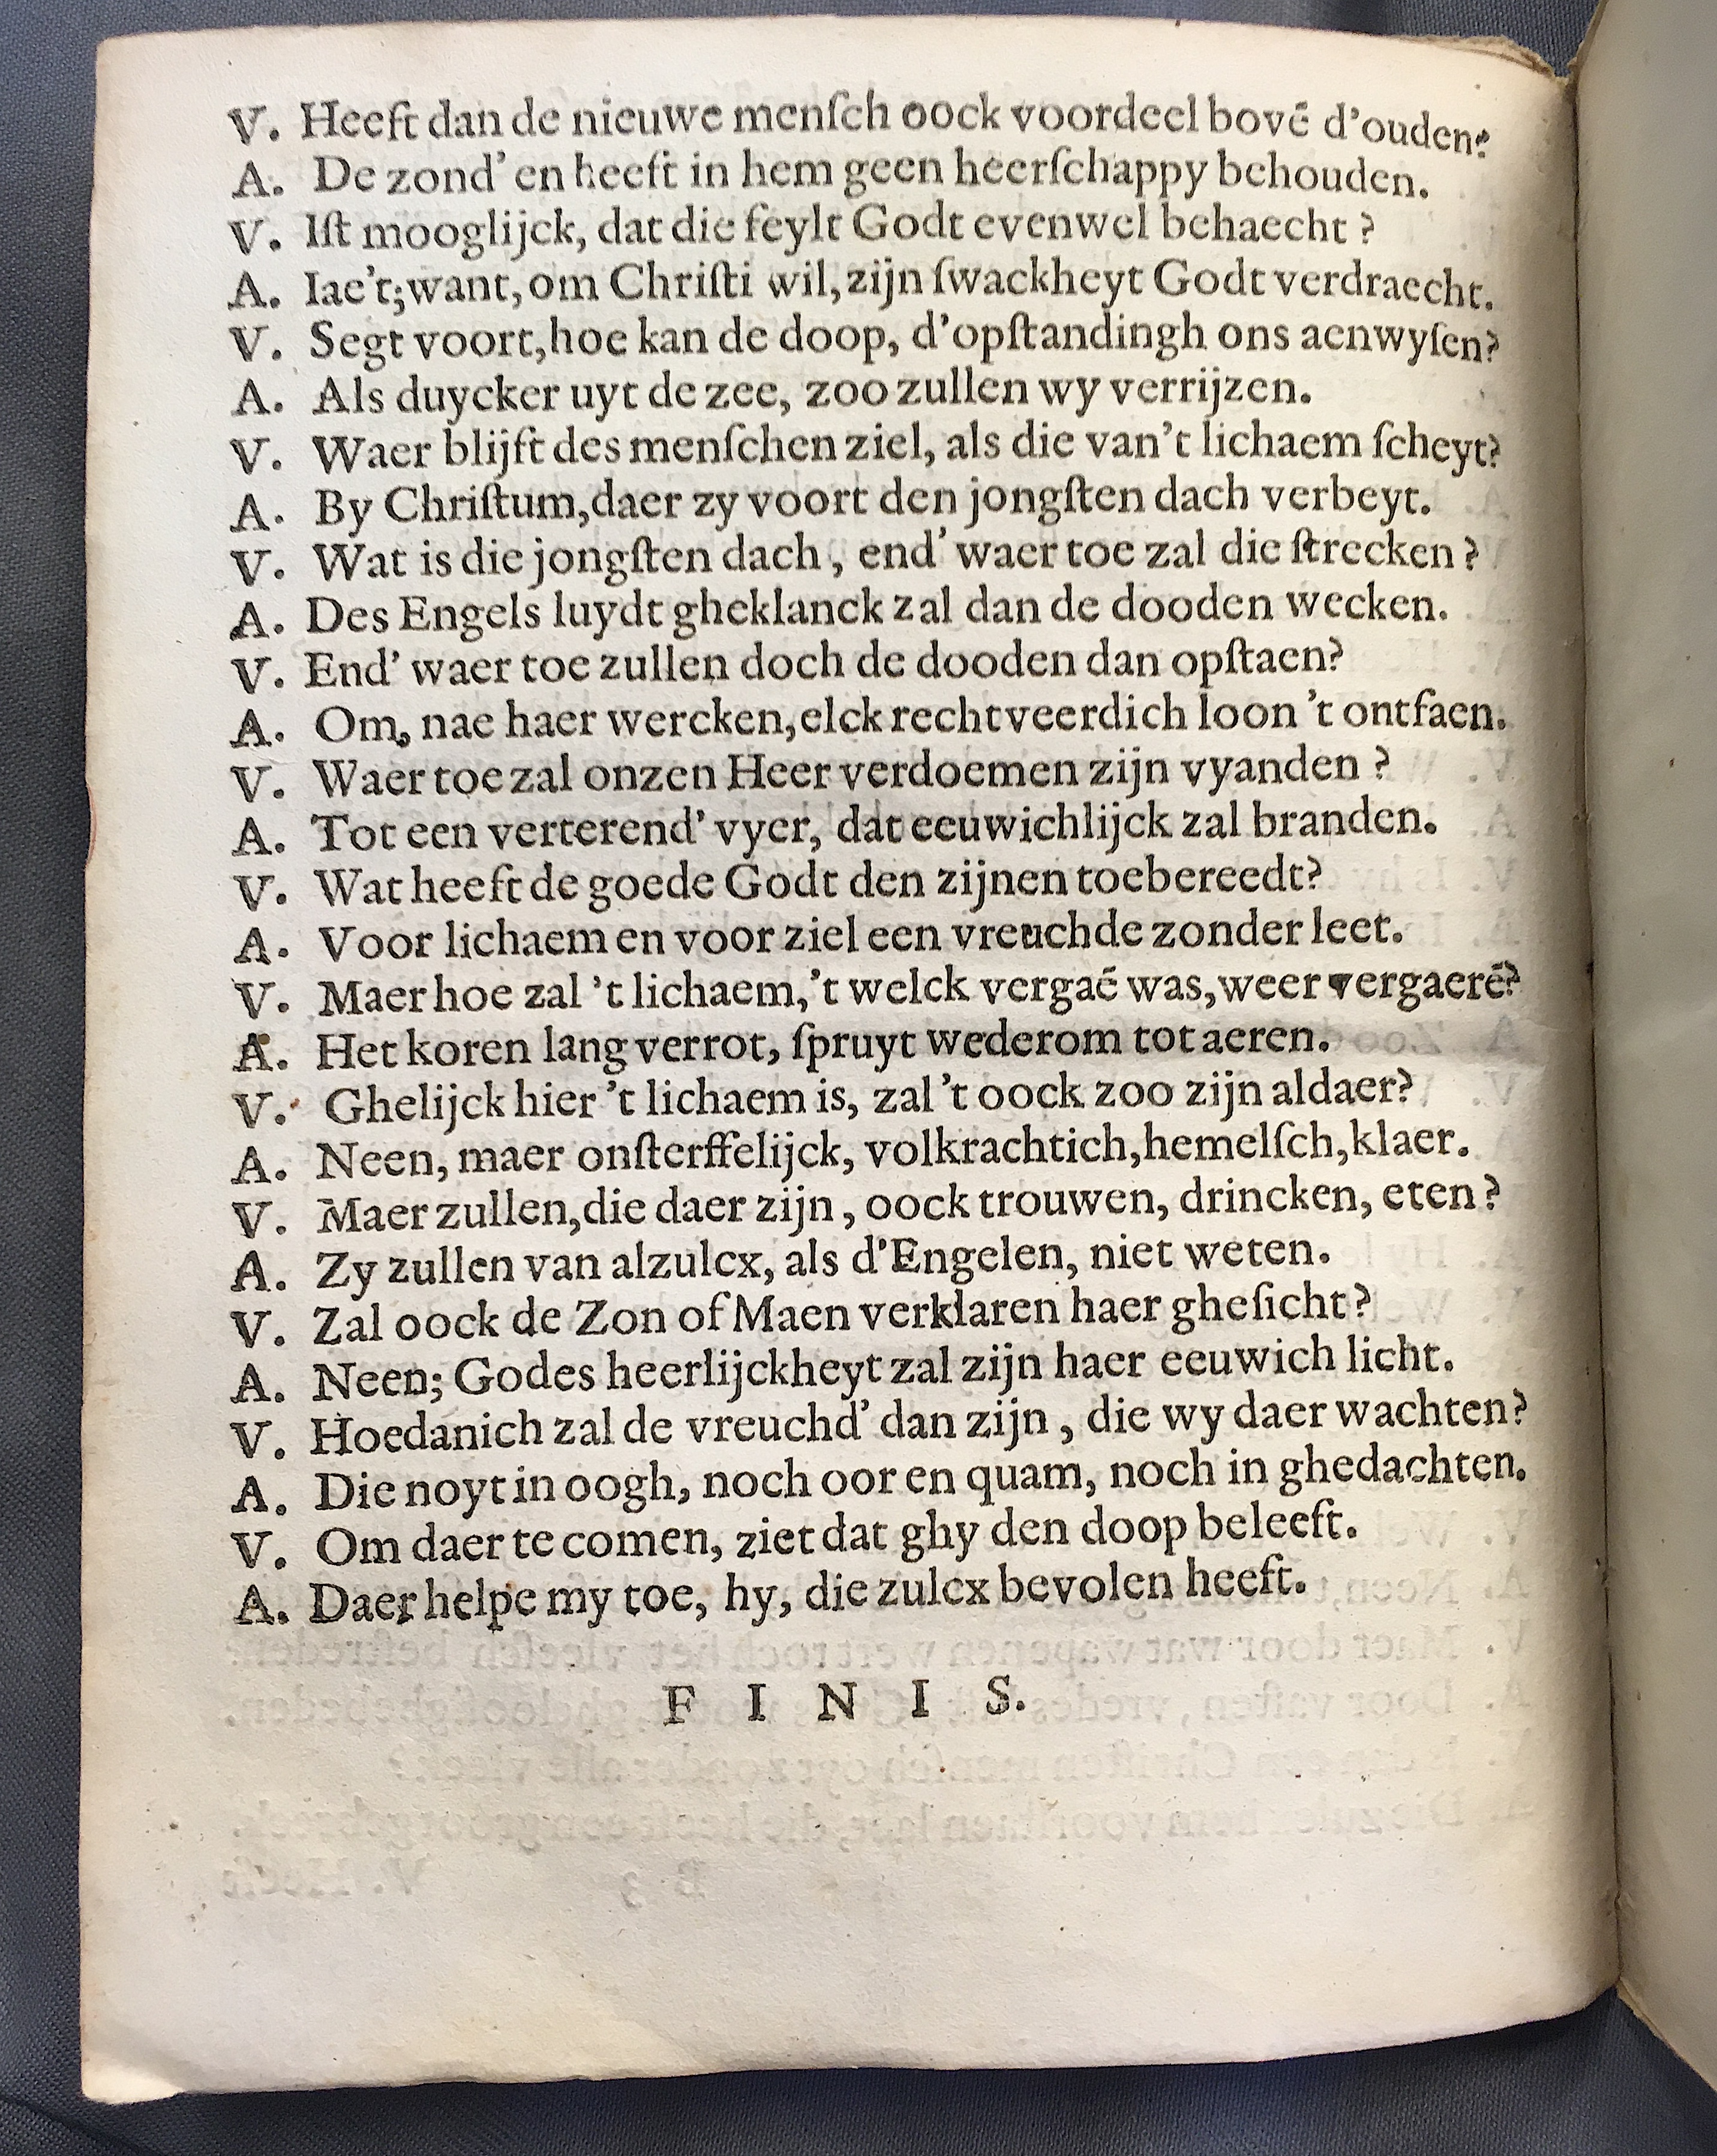 V. Heeft dan de nieuwe menſch oock voordeel bovẽ d'ouden?
A. De zond' en heeft in hem geen heerſchappy behouden.
V. Iſt mooglijck, dat die feylt Godt evenwel behaecht?
A. Iae't; want, om Chriſti wil, zijn ſwackheyt Godt verdraecht.
V. Segt voort, hoe kan de doop, d'opſtandingh ons aenwyſen?
A. Als duycker uyt de zee, zoo zullen wy verrijzen.
V. Waer blijft des menſchen ziel, als die van't lichaem ſcheyt?
A. By Chriſtum, daer zy voort den jongſten dach verbeyt.
V. Wat is die jongſten dach, end' waer toe zal die ſtrecken?
A. Des Engels luydt gheklanck zal dan de dooden wecken.
V. End' waer toe zullen doch de dooden dan opſtaen?
A. Om, nae haer wercken, elck rechtveerdich loon 't ontfaen.
V. Waer toe zal onzen Heer verdoemen zijn vyanden?
A. Tot een verterend' vyer, dat eeuwichlijck zal branden.
V. Wat heeft de goede Godt den zijnen toebereedt?
A. Voor lichaem en voor ziel een vreuchde zonder leet.
V. Maer hoe zal 't lichaem, 't welck vergaẽ was, weer vergaerẽ?
A. Het koren lang verrot, ſpruyt wederom tot aeren.
V. Ghelijck hier 't lichaem is, zal 't oock zoo zijn aldaer?
A. Neen, maer onſterffelijck, volkrachtich, hemelſch, klaer.
V. Maer zullen, die daer zijn, oock trouwen, drincken, eten?
A. Zy zullen van alzulcx, als d'Engelen, niet weten.
V. Zal oock de Zon of Maen verklaren haer gheſicht?
A. Neen; Godes heerlijckheyt zal zijn haer eeuwich licht.
V. Hoedanich zal de vreuchd' dan zijn, die wy daer wachten?
A. Die noyt in oogh, noch oor en quam, noch in ghedachten.
V. Om daer te comen, ziet dat ghy den doop beleeft.
A. Daer helpe my toe, hy, die zulcx bevolen heeft.
F I N I S.